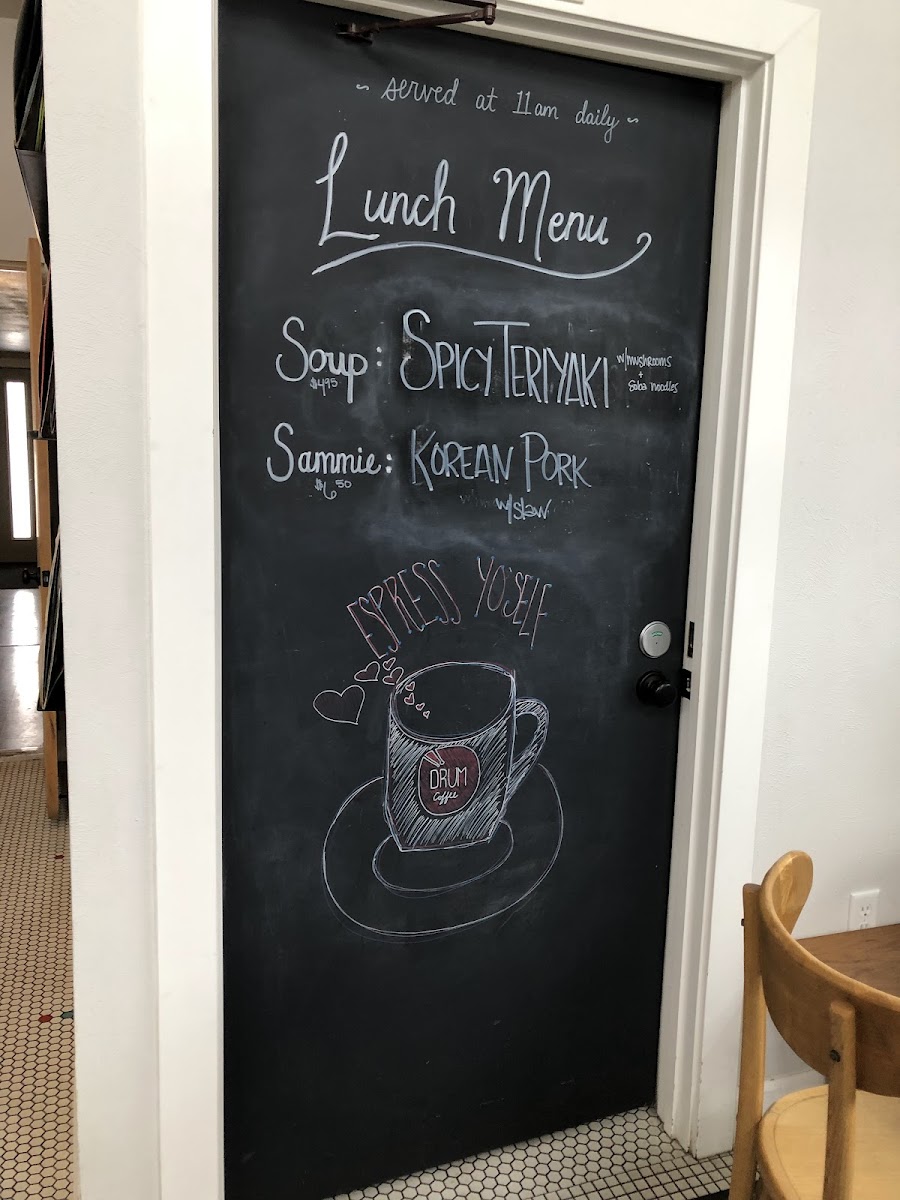 ~ served at 11am daily ~
Lunch Menu
Soup: SPICY TERIYAKI w/mushrooms
$4.95 + Soba noodles
Sammie: KOREAN PORK
$6.50 w/slaw
ESPRESS YO'SELF
DRUM
Coffee